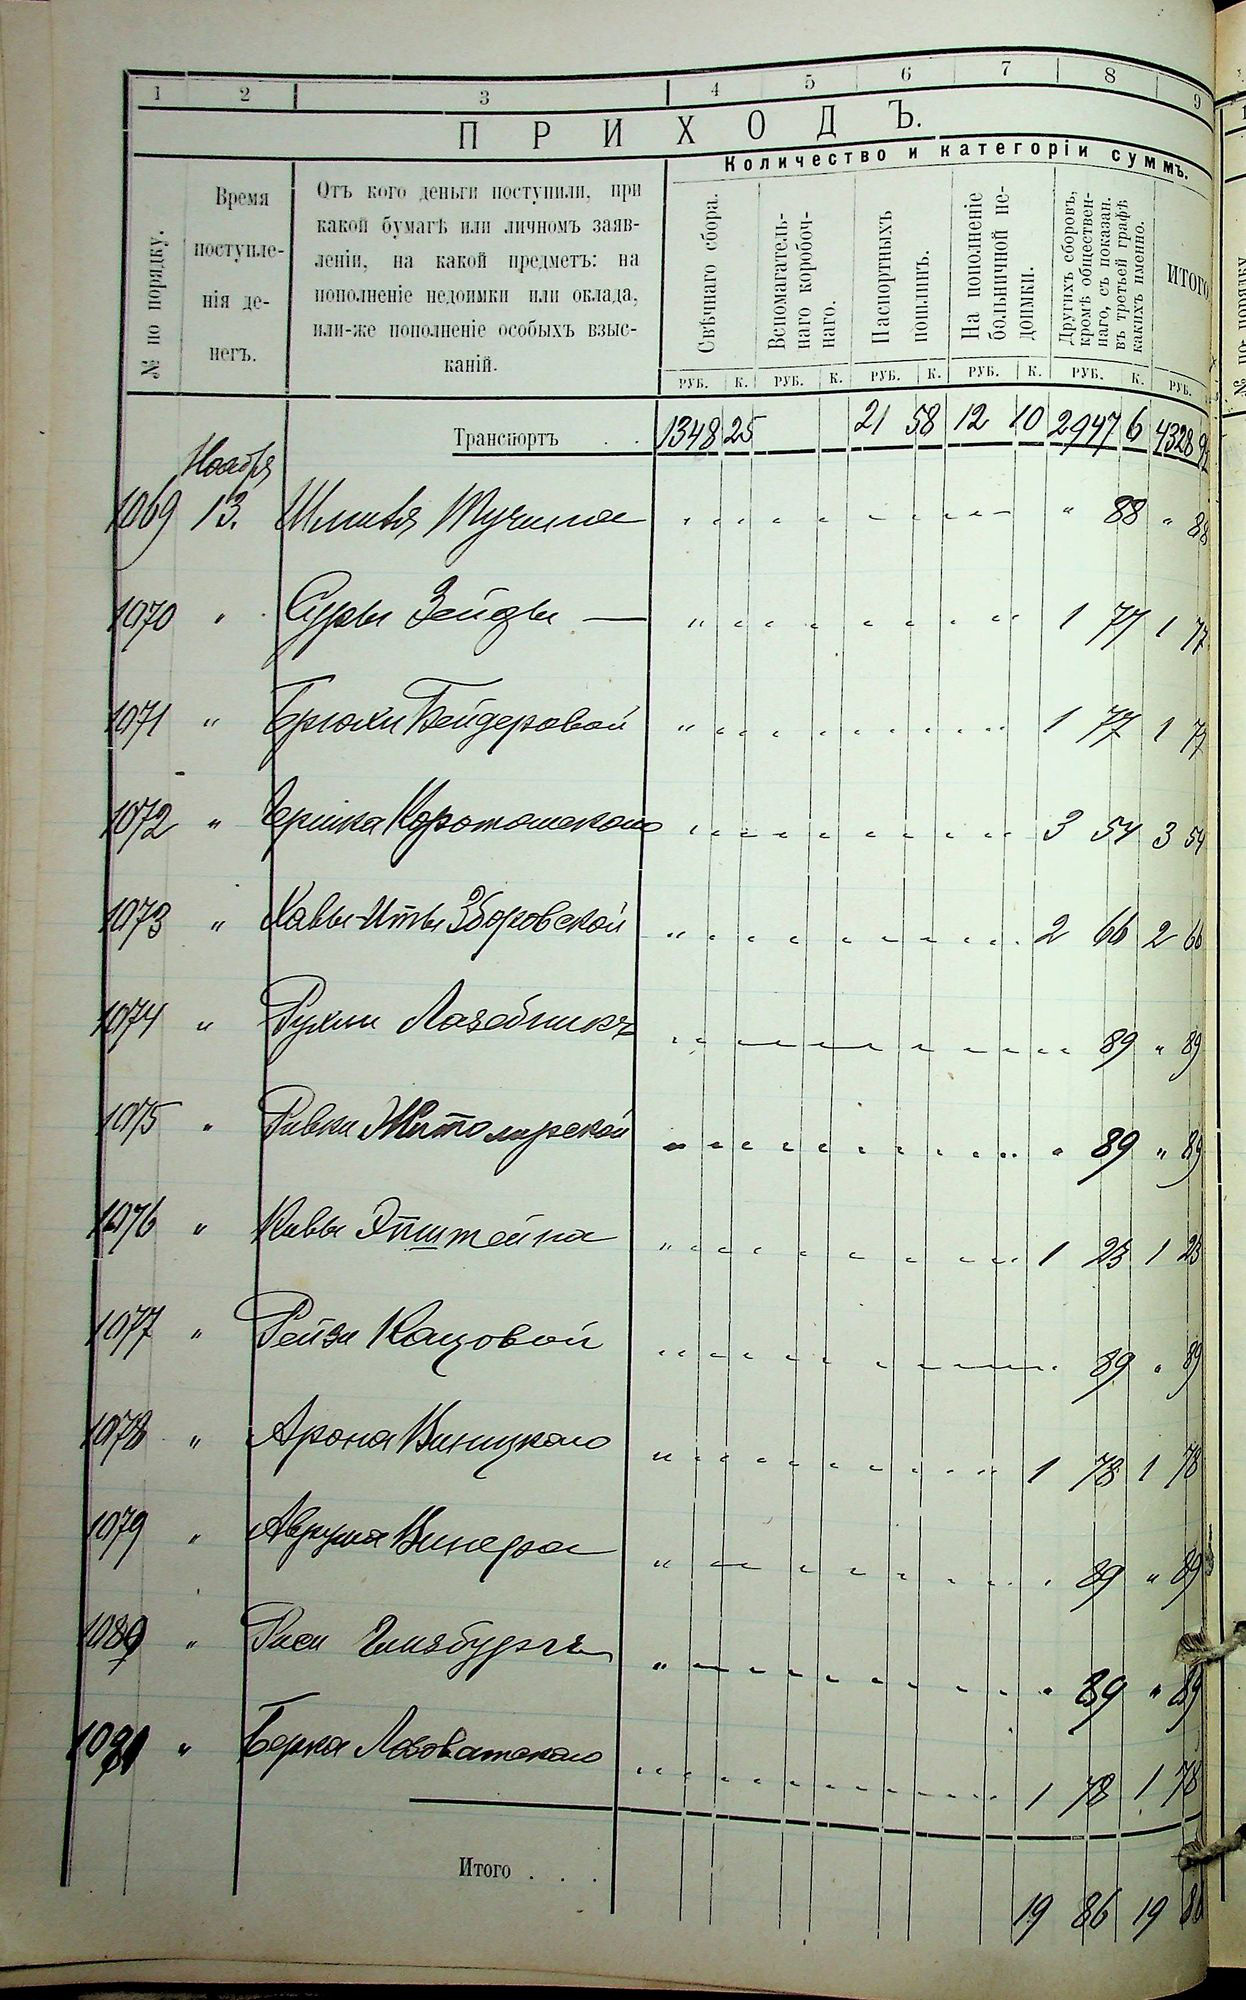 1 2 3 4 5 6 7 8 9
ПРИХОДЪ.
№ по порядку.
Время поступле-
нія де-
негъ.
Отъ кого деньги поступили, при
какой бумагѣ или личномъ заяв-
леніи, на какой предметъ: на
пополненіе недоимки или оклада,
или-же пополненіе особыхъ взыс-
каній.
Количество и категоріи суммъ.
Свѣчнаго сбора.
Вспомагатель-
наго коробоч-
наго.
Паспортныхъ
пошлинъ.
На пополненіе
больничной не-
доимки.
Другихъ сборовъ,
кромѣ обществен-
наго, съ показан.
въ третьей графѣ
какихъ именно.
ИТОГО
РУБ. К. РУБ. К. РУБ. К. РУБ. К. РУБ. К. РУБ.
Транспортъ . . 1348 25 21 58 12 10 2947 6 4328
Ноября
1069 13. " 88 " 88
1070 " Суры Зейды — 1 77 1 77
1071 " Брюхи Бейдеровой 1 77 1 77
1072 " 3 54 3 54
1073 " Хавы-Иты Зборовской 2 66 2 66
1074 " Рухли Лазебникъ 89 " 89
1075 " Ривки Житомирской " 89 " 89
1076 " Эпштейна 1 23 1 23
1077 " Рейзи Кацовой 89 " 89
1078 " Арона Виницкаго 1 78 1 78
1079 " Аврума Винера 89 " 89
1080 " Раси Гинзбургъ " 89 " 89
1081 " Берка Лобоватскаго 1 78 1 78
Итого . . . 19 86 19 86